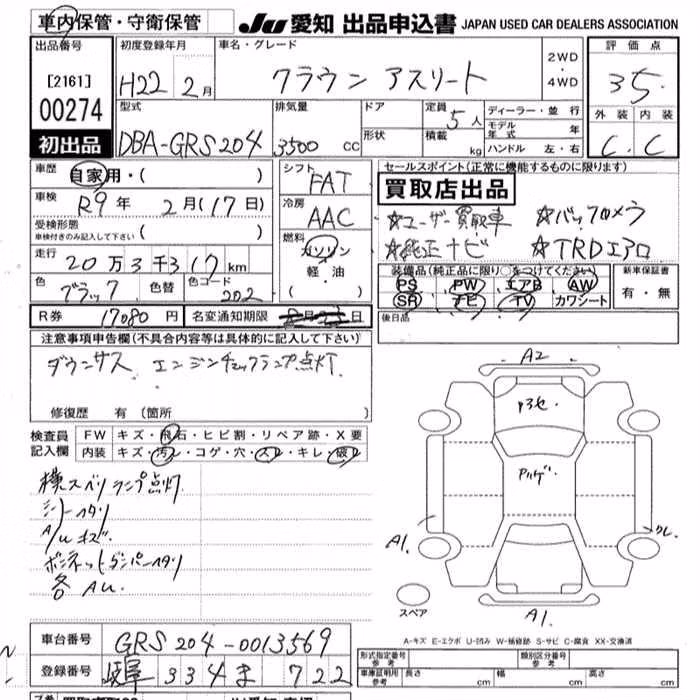 車内保管・守衛保管
JU 愛知 出品申込書 JAPAN USED CAR DEALERS ASSOCIATION
出品番号
[2161]
00274
初出品
初度登録年月
H22 2月
車名・グレード
クラウン アスリート
2WD
・
4WD
評価点
3.5
外装 内装
C C
型式
DBA-GRS204
排気量
3500 CC
ドア
形状
定員
5人
積載
kg
ディーラー・並行
モデル年式 年
ハンドル 左・右
車歴
自家用・( )
車検
R9年 2月(17日)
受検形態
車検付きのみ記入して下さい ( )
走行
20万3千317km
色
ブラック
色替
色コード
202
シフト
FAT
冷房
AAC
燃料
ガソリン
軽・油
・( )
セールスポイント(正常に機能するものに限ります)
買取店出品
☆ユーザー買取車 ☆バックカメラ
☆純正ナビ ☆TRDエアロ
装備品(純正品に限り○をつけてください)
PS PW エアB AW
SR ナビ TV カワシート
新車保証書
有・無
後日品
R券 17080円
名変通知期限
月 日
注意事項申告欄(不具合内容等は具体的に記入して下さい)
ダウンサス エンジンチェックランプ点灯
修復歴 有(箇所 )
検査員
記入欄
FW キズ・飛石・ヒビ割・リペア跡・X要
内装 キズ・汚レ・コゲ・穴・スレ・キレ・破レ
横スベリランプ点灯
シートヘタリ
A/Wキズ
ボンネットダンパーヘタリ
各AU
A2
A1
A1
スペア
A-キズ E-エクボ U-凹み W-補修跡 S-サビ C-腐食 XX-交換済
車台番号
GRS204-0013569
登録番号
岐阜 334 ま 722
形式指定番号
参考
類別区分番号
参考
車庫証明用
参考
長さ cm 幅 cm 高さ cm